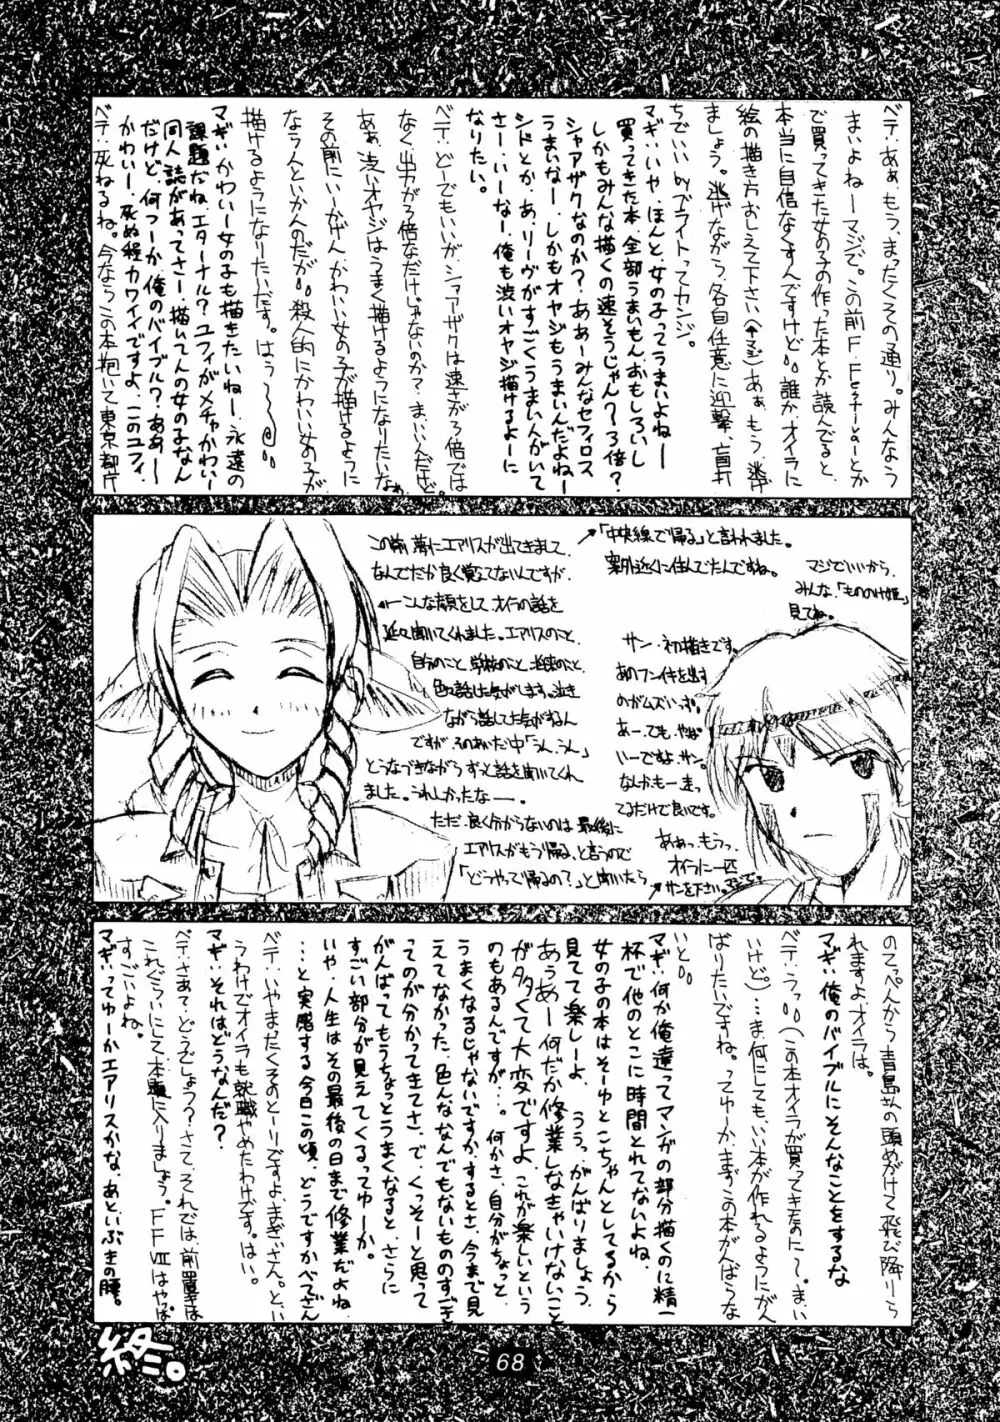 ベテ：あぁ、もう、まったくその通り。みんなう
まいよねーマジで。この前F・Festiaーとか
で買ってきた女の子の作った本とか読んでると、
本当に自信なくすんですけど。。誰かオイラに
絵の描き方おしえて下さい(←マジ)あぁ、もう、逃げ
ましょう。逃げながら、各自任意に迎撃、盲打
ちでいい byブライトってカンジ。
マギ：いや、ほんと、女の子ってうまいよねー
買ってきた本、全部うまいもんおもしろいし
しかもみんな描くの速そうじゃん？3倍？
シャアザクなのか？ああーみんなセフィロス
うまいなー。しかもオヤジもうまいんだよねー
シドとか、あ、リーヴがすごくうまい人がいて
さー・いーなー、俺も渋いオヤジ描けるよーに
なりたい。
ベテ：どーでもいいが、シャアザクは速さが3倍では
なく、出力が3倍なだけじゃないのか？まいいんだけど。
あぁ、渋いオヤジはうまく描けるようになりたいなぁ
その前にいーかげん、かわいい女の子が描けるように
ならんといかんのだが。。殺人的にかわいい女の子が
描けるようになりたいです。はぅ〜〜@
マギ：かわいー女の子も描きたいねー、永遠の
課題だね、エターナル？ユフィがメチャかわいー
同人誌があってさー・描いてんの女の子なん
だけど、何つーか俺のバイブル？ああー
かわいー、死ぬ程カワイイですよ、このユフィ
ベテ：死ねるね。今ならこの本抱いて東京都庁
この前 夢にエアリスが出てきまして、
なんでだか良く覚えてないんですが、
←こんな顔をして、オイラの話を
延々聞いてくれました。エアリスのこと、
自分のこと、学校のこと、将来のこと、
色々話した気がします。泣き
ながら話してた気がすんねん
ですが、そのあいだ中「うん、うん」
とうなづきながら、ずっと話を聞いてくれ
ました。うれしかったなー。
ただ、良く分からないのは、最後に
エアリスがもう帰る、と言うので
「どうやって帰るの？」と聞いたら
「中央線で帰る」と言われました。
案外近くに住んでたんですね。
マジでいいから、
みんな、「もののけ姫」
見てね。
サン・初描きです。
あのフンイキを出す
のがムズいっす。
あー、でも、やぱ
いーですよ、サン。
なんかもー走っ
てるだけで良いです。
あぁっ、もうっ、
オイラに一匹
サンを下さい。マジで。
のてっぺんから青島の頭めがけて飛び降りら
れますよ、オイラは。
マギ：俺のバイブルにそんなことをするな
ベテ：うっ。。(この本オイラが買ってきたのに〜。まい
いけど)…ま何にしても、いい本が作れるようにがん
ばりたいですね。ってゆーか、まずこの本がんばらな
いと。。
マギ：何か俺達ってマンガの部分描くのに精一
杯で他のとこに時間とれてないよね、
女の子の本はそーゆとこちゃんとしてるから
見てて楽しーよ、ううっがんばりましょう、
あぅあー何だか修業しなきゃいけないこと
がタタくて大変ですよ、これが楽しいという
のもあるんですが…。何かさ、自分がちょっと
うまくなるじゃないですか、するとさ、今まで見
えてなかった、色んななんでもないもののすごさ
ってのが分かってきてさ、で、くっそーと思って
がんばってもうちょっとうまくなると、さらに
すごい部分が見えてくるってゆーか。
いや、人生はその最後の日まで修業だよね
…と実感する今日この頃、どうですかベテさん
ベテ：いやまだくるのとーりですよ、まぎぃさん。とい
うわけでオイラも就職やめたわけです。はい。
マギ：それはどうなんだ？
ベテ：さあて、どうでしょう？さて、それでは、前置きは
これぐらいにして本題に入りましょう。FFⅦはやっぱ
すごいよね。
マギ：ってゆーかエアリスかな、あといぶきの瞳。
終。
68